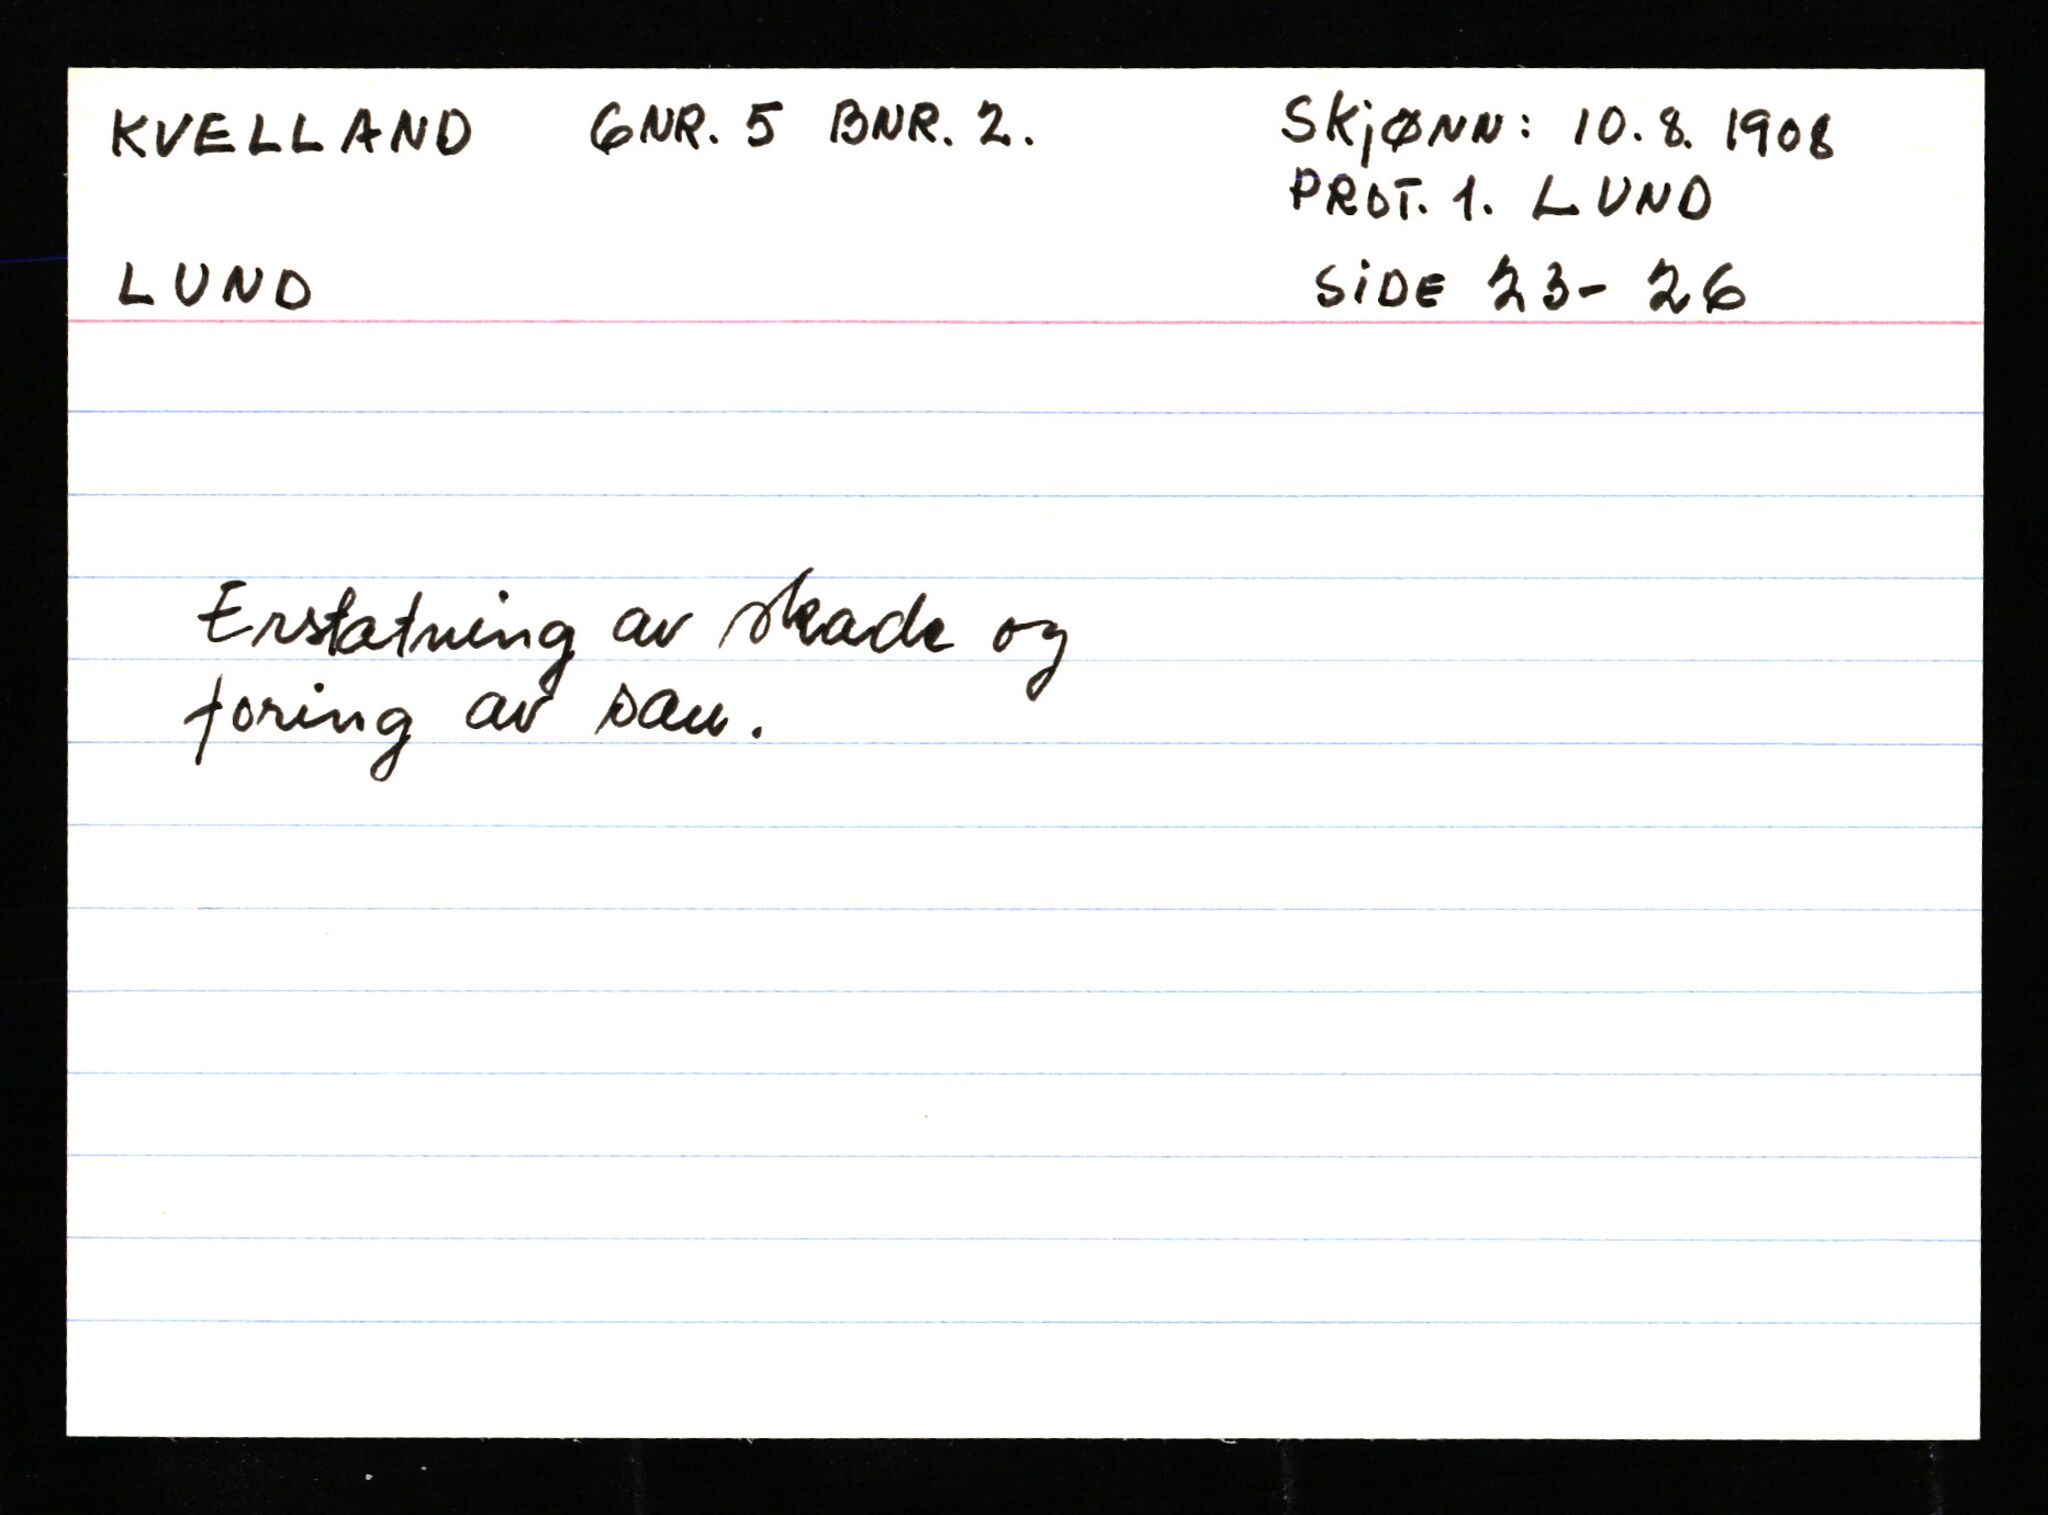 KVELLAND GNR. 5 BNR. 2.
SKjØNN: 10.8. 1908
PROT. 1. LUND
LUND
SiDE 23-26
Erstatning av skade og
foring av sau.